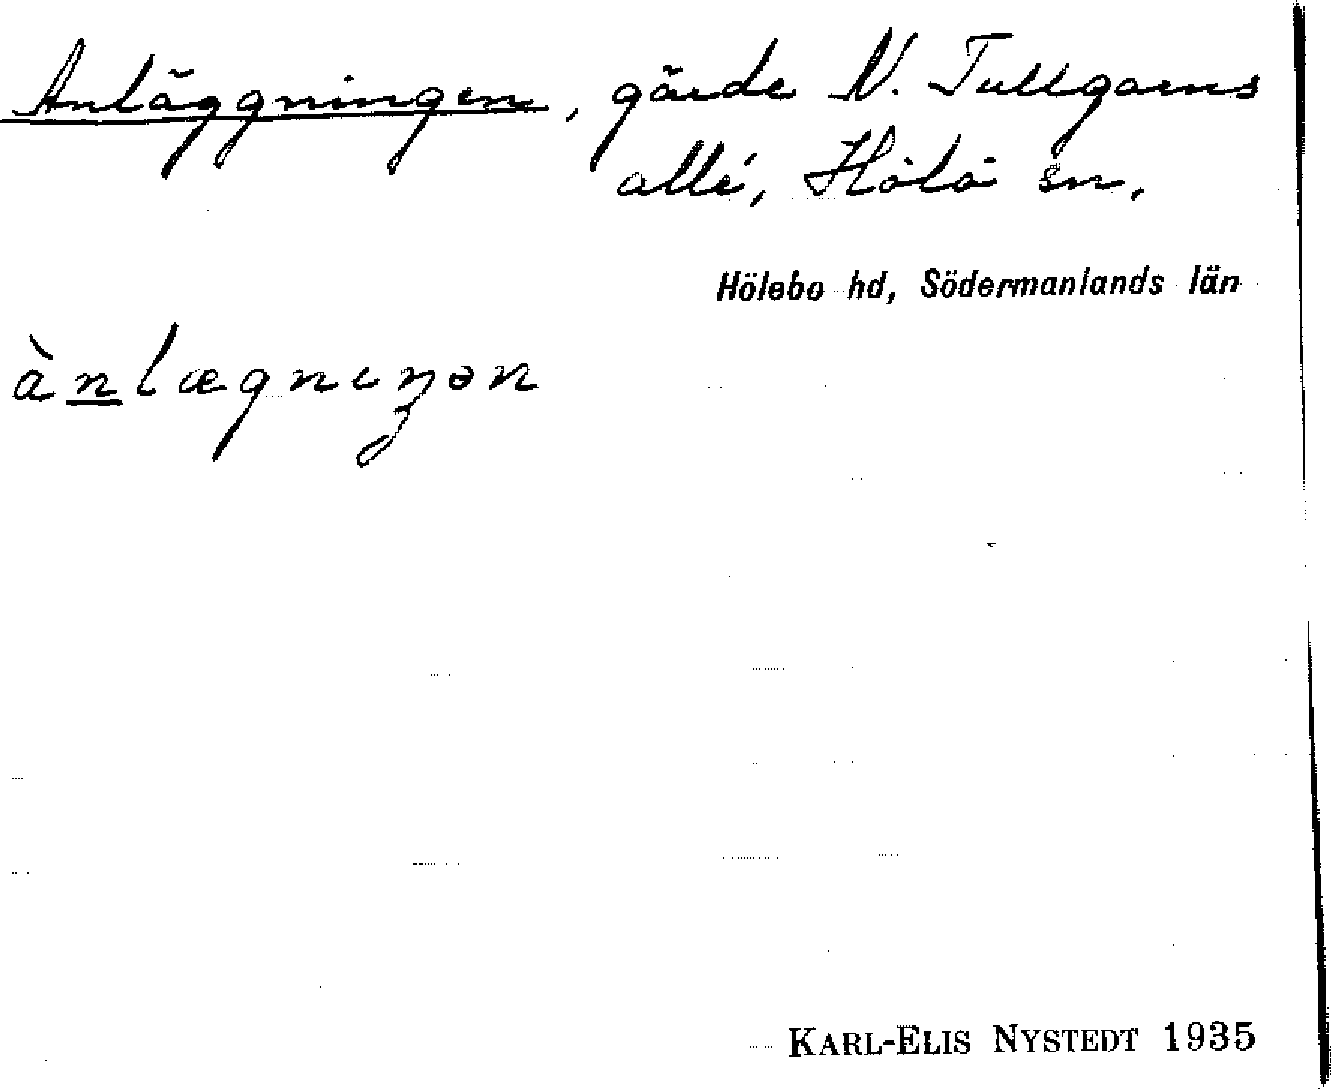 Anläggningen, gärde N. Tullgarns
allé, Hölö sn.
Hölebo hd, Södermanlands län
ànlægnıŋən
KARL-ELIS NYSTEDT 1935